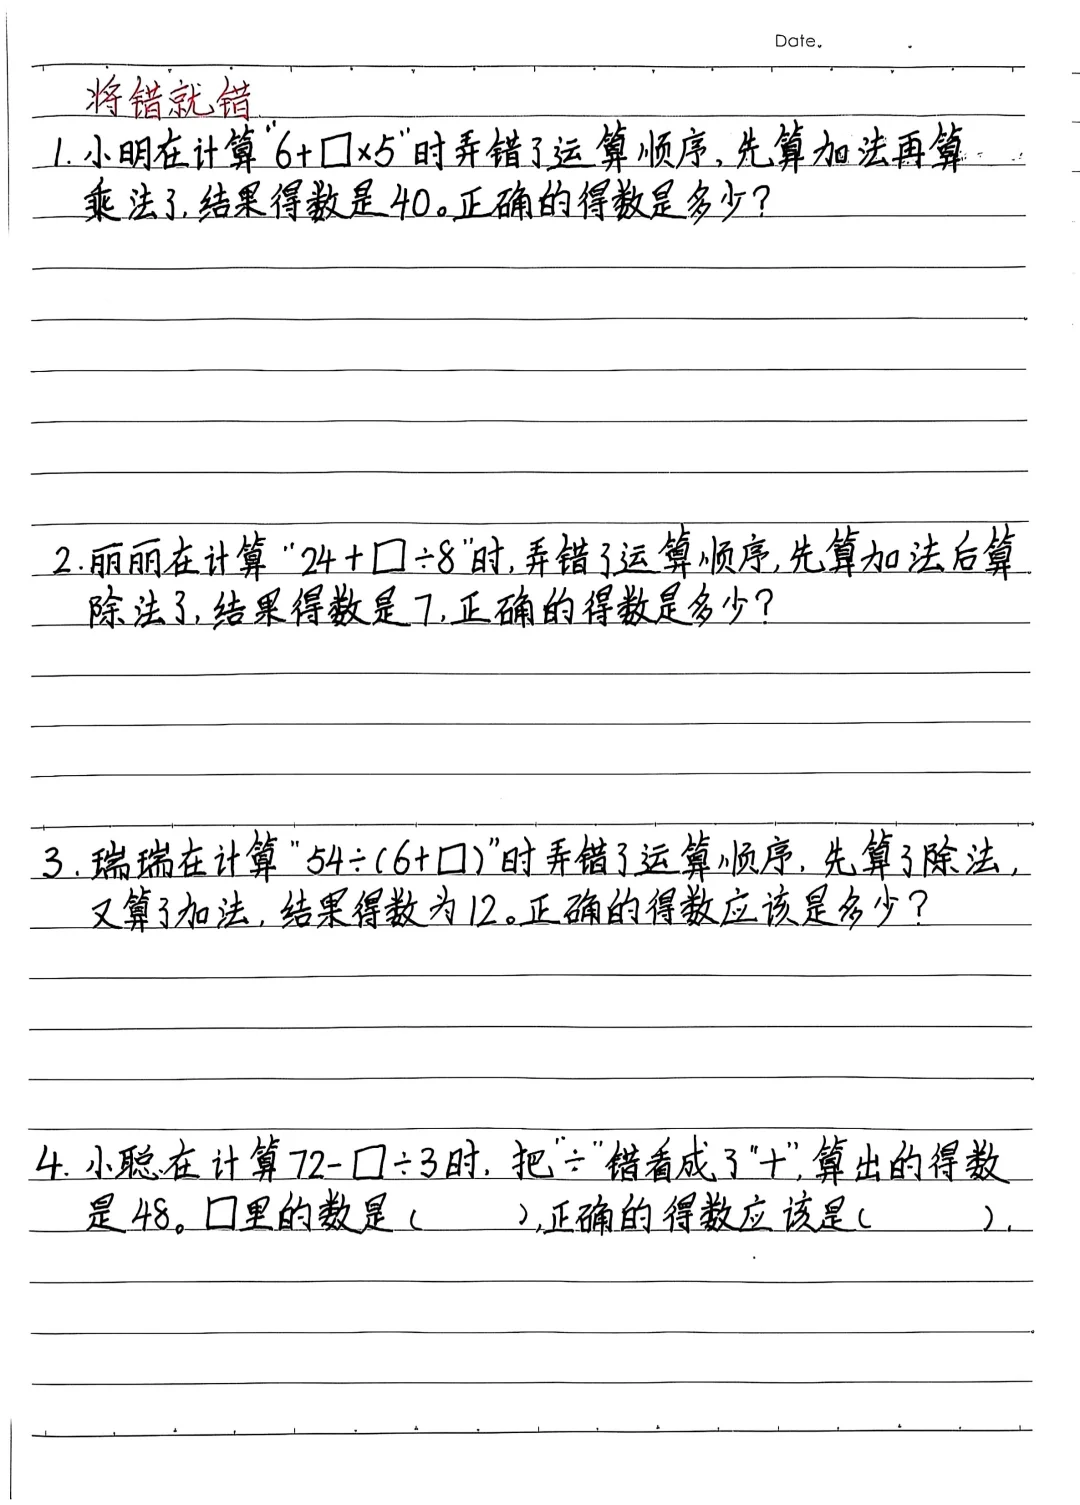 Date.
将错就错
1. 小明在计算“6+□×5”时弄错了运算顺序,先算加法再算
乘法了,结果得数是40。正确的得数是多少?
2. 丽丽在计算“24+□÷8”时,弄错了运算顺序,先算加法后算
除法了,结果得数是7,正确的得数是多少?
3. 瑞瑞在计算“54÷(6+□)”时弄错了运算顺序,先算了除法,
又算了加法,结果得数为12。正确的得数应该是多少?
4. 小聪在计算72-□÷3时,把“÷”错看成了“+”,算出的得数
是48。□里的数是( ),正确的得数应该是( ).